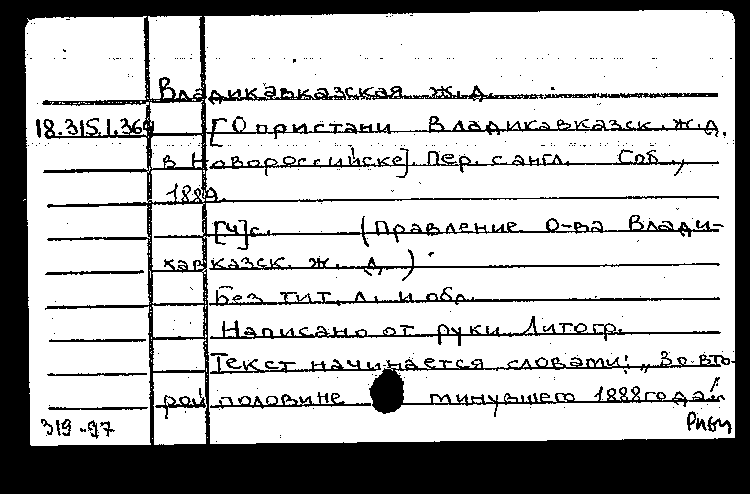 Владикавказская ж.д.
18.315.1.369 [О пристани Владикавказск. ж.д.
в Новороссийске]. Пер. с англ. Спб.,
1889.
[4]с. (Правление О-ва Влади-
кавказск. ж. д.)
Без тит. л. и обл.
Написано от руки. Литогр.
Текст начинается словами: „Во вто-
рой половине минувшего 1888 года"
319-97